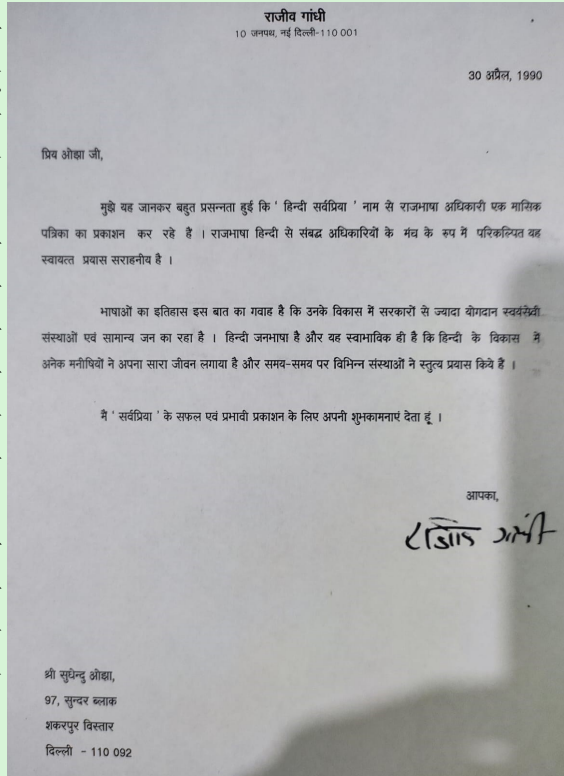 राजीव गांधी
10 जनपथ, नई दिल्ली-110 001
30 अप्रैल, 1990
प्रिय ओझा जी,
मुझे यह जानकर बहुत प्रसन्नता हुई कि ' हिन्दी सर्वप्रिया ' नाम से राजभाषा अधिकारी एक मासिक
पत्रिका का प्रकाशन कर रहे है । राजभाषा हिन्दी से संबद्ध अधिकारियों के मंच के रुप में परिकल्पित यह
स्वायत्त प्रयास सराहनीय है ।
भाषाओं का इतिहास इस बात का गवाह है कि उनके विकास में सरकारों से ज्यादा योगदान स्वयंसेवी
संस्थाओं एवं सामान्य जन का रहा है । हिन्दी जनभाषा है और यह स्वाभाविक ही है कि हिन्दी के विकास में
अनेक मनीषियों ने अपना सारा जीवन लगाया है और समय-समय पर विभिन्न संस्थाओं ने स्तुत्य प्रयास किये हैं ।
मै ' सर्वप्रिया ' के सफल एवं प्रभावी प्रकाशन के लिए अपनी शुभकामनाएं देता हूं ।
आपका,
राजीव गांधी
श्री सुधेन्दु ओझा,
97, सुन्दर ब्लाक
शकरपुर विस्तार
दिल्ली - 110 092